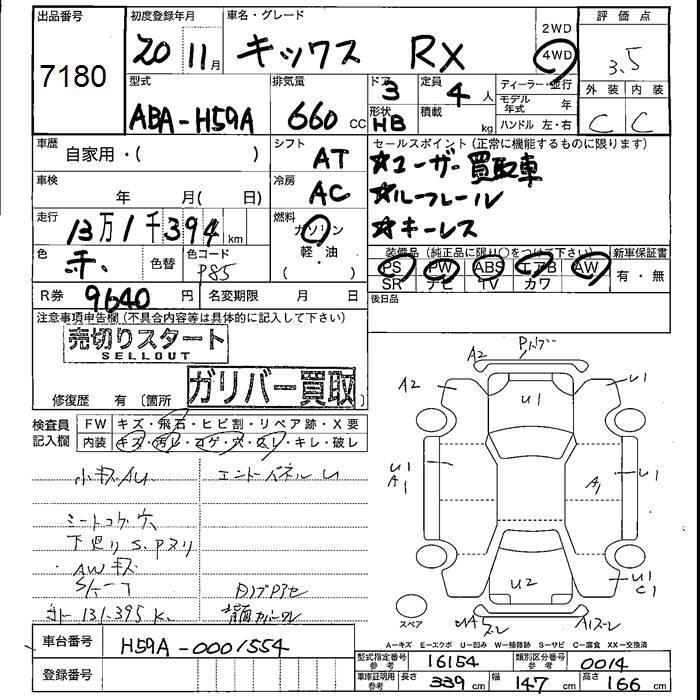 出品番号 初度登録年月 車名・グレード 2WD 評価点
7180 20 11月 キックス RX 4WD 3.5
外装 内装
C C
型式 排気量 ドア 3 定員 4人 ディーラー・並行
ABA-H59A 660 CC 形状 HB 積載 kg モデル年式 年
ハンドル 左・右
車歴 自家用・( ) シフト AT セールスポイント(正常に機能するものに限ります)
☆ユーザー買取車
車検 年 月( 日) 冷房 AC ☆ルーフレール
走行 13万1千394km 燃料 ガソリン ☆キーレス
軽・油
( )
色 赤 色替 色コード P85
装備品(純正品に限り○をつけて下さい) 新車保証書
PS PW ABS エアB AW 有・無
SR ナビ TV カワ
R券 9640円 名変期限 月 日 後日品
注意事項申告欄(不具合内容等は具体的に記入して下さい)
売切りスタート
SELLOUT
ガリバー買取
修復歴 有(箇所
検査員記入欄 FW キズ・飛石・ヒビ割・リペア跡・X要
内装 キズ・汚レ・コゲ・穴・スレ・キレ・破レ
小キズAU エンドパネルU
シートコゲ穴
下廻りS.Pヌリ
AWキズ
131,395K
A2 U1 A2 U1
U1 A1 A1 U1
U2 U1 C1
スペア
A=キズ E=エクボ U=凹み W=補修跡 S=サビ C=腐食 XX=交換済
車台番号 H59A-0001554
登録番号
型式指定番号 参考 16154 類別区分番号 参考 0014
車車証明用 参考 長さ 339cm 幅 147cm 高さ 166cm